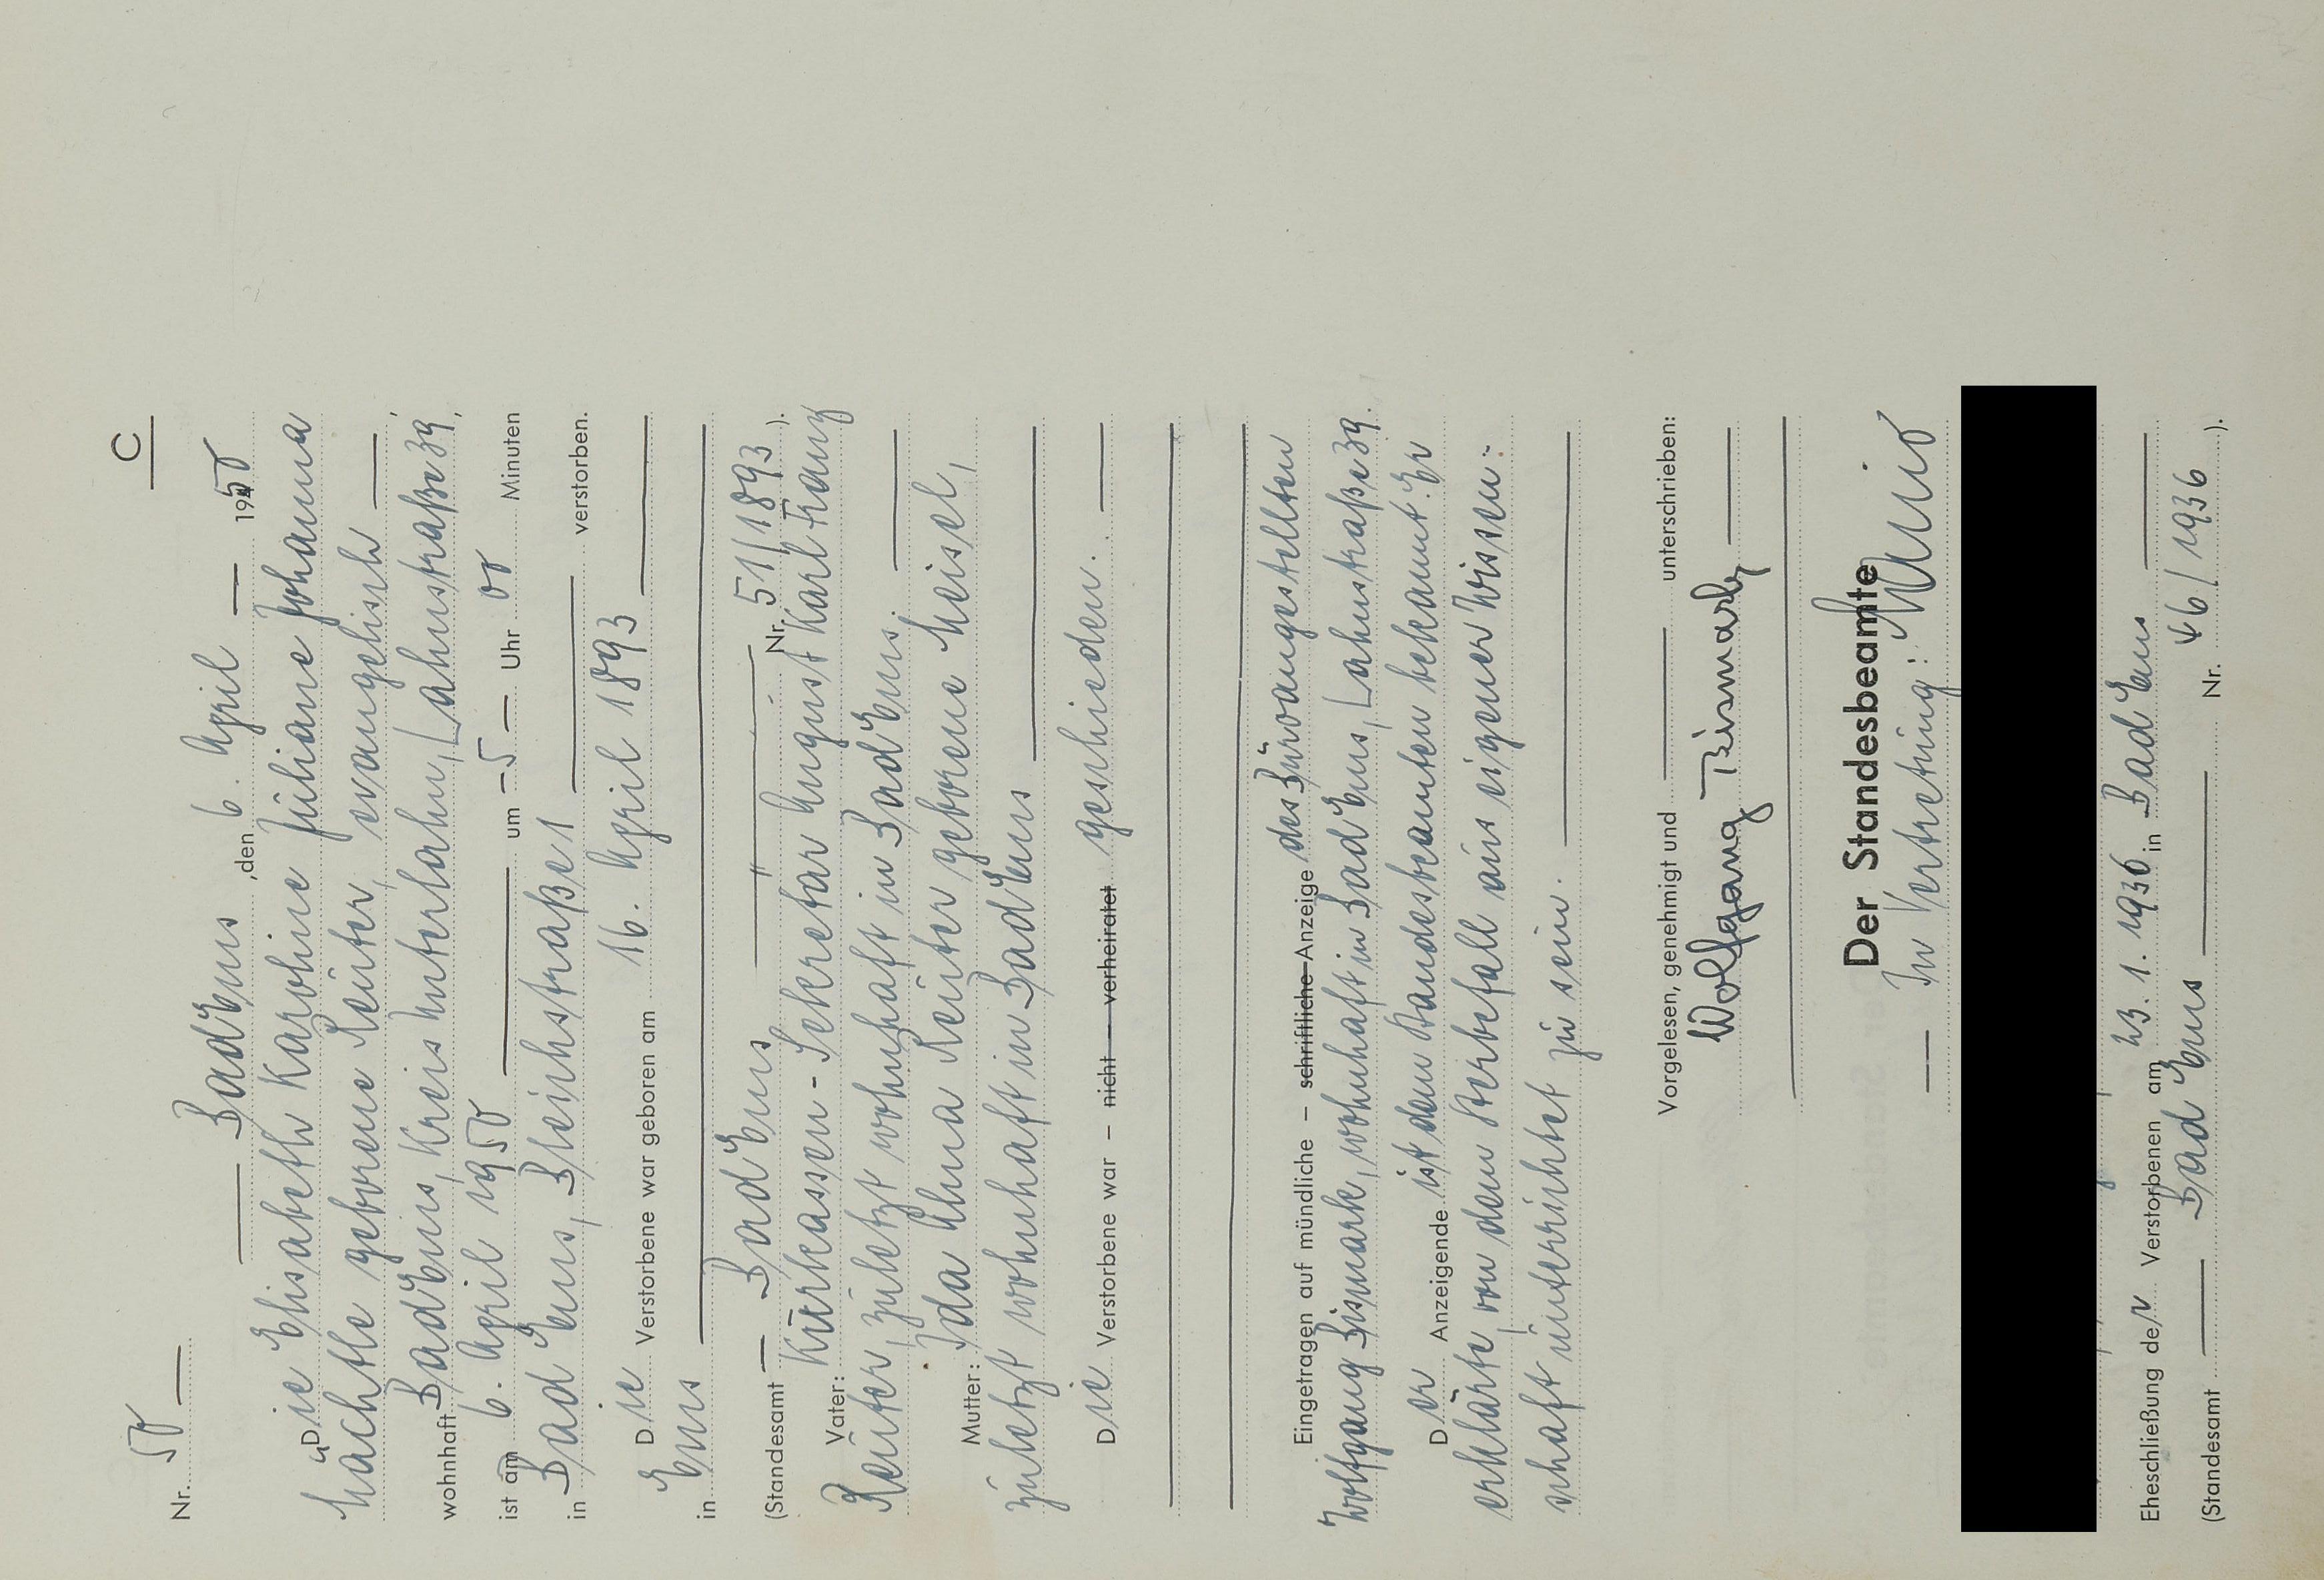 C
Nr. 50
Bad Ems, den 6. April 1950
Die Elisabeth Karoline Juliane Johanna
Hächtle geborene Reuter, evangelisch
wohnhaft Bad Ems, Kreis Unterlahn, Lahnstraße 39,
ist am 6. April 1950 um 5 Uhr 00 Minuten
in Bad Ems, Bleichstraße 1 verstorben.
Die Verstorbene war geboren am 16. April 1893
in Ems
(Standesamt Bad Ems " Nr. 51/1893).
Vater: Kurkassen-Sekretär August Karl Franz
Reuter, zuletzt wohnhaft in Bad Ems.
Mutter: Ida Anna Reuter geborene Heisel,
zuletzt wohnhaft in Bad Ems
Die Verstorbene war – nicht – verheiratet geschieden.
Eingetragen auf mündliche – schriftliche Anzeige des Büroangestellten
Wolfgang Bismark, wohnhaft in Bad Ems, Lahnstraße 39.
Der Anzeigende ist dem Standesbeamten bekannt. Er
erklärte, von dem Sterbefall aus eigener Wissen-
schaft unterrichtet zu sein.
Vorgelesen, genehmigt und unterschrieben:
Wolfgang Bismark
Der Standesbeamte
In Vertretung:
Eheschließung der Verstorbenen am 23. 1. 1936 in Bad Ems
(Standesamt Bad Ems Nr. 46/1936).